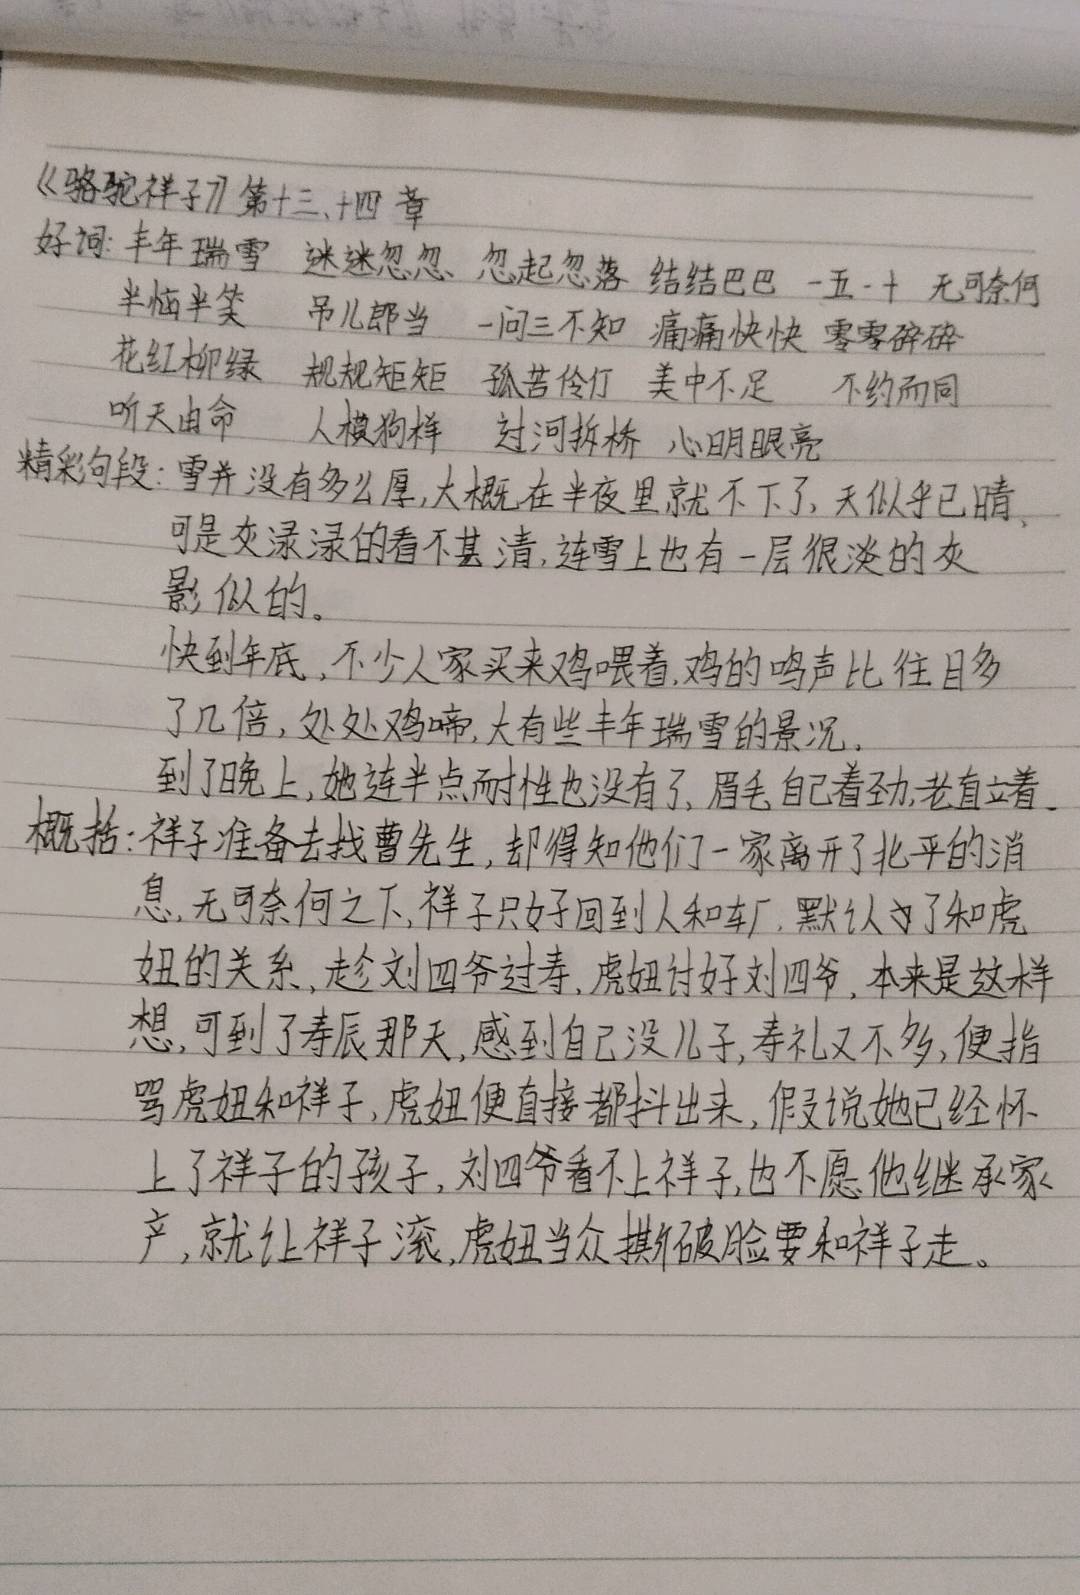 《骆驼祥子》第十三、十四章
好词：丰年瑞雪 迷迷忽忽 忽起忽落 结结巴巴 一五一十 无可奈何
半恼半笑 吊儿郎当 一问三不知 痛痛快快 零零碎碎
花红柳绿 规规矩矩 孤苦伶仃 美中不足 不约而同
听天由命 人模狗样 过河拆桥 心明眼亮
精彩句段：雪并没有多么厚，大概在半夜里就不下了，天似乎已晴，
可是灰渌渌的看不甚清，连雪上也有一层很淡的灰
影似的。
快到年底，不少人家买来鸡喂着，鸡的鸣声比往日多
了几倍，处处鸡啼，大有些丰年瑞雪的景况。
到了晚上，她连半点耐性也没有了，眉毛自己着劲，老直立着。
概括：祥子准备去找曹先生，却得知他们一家离开了北平的消
息，无可奈何之下，祥子只好回到人和车厂，默认了和虎
妞的关系，趁刘四爷过寿，虎妞讨好刘四爷，本来是这样
想，可到了寿辰那天，感到自己没儿子，寿礼又不多，便指
骂虎妞和祥子，虎妞便直接都抖出来，假说她已经怀
上了祥子的孩子，刘四爷看不上祥子，也不愿他继承家
产，就让祥子滚，虎妞当众撕破脸要和祥子走。